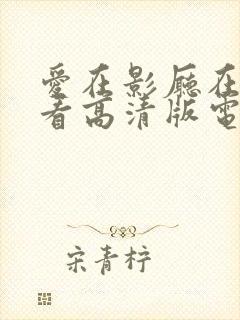 愛在影廳在
看高清版電
宋青梓